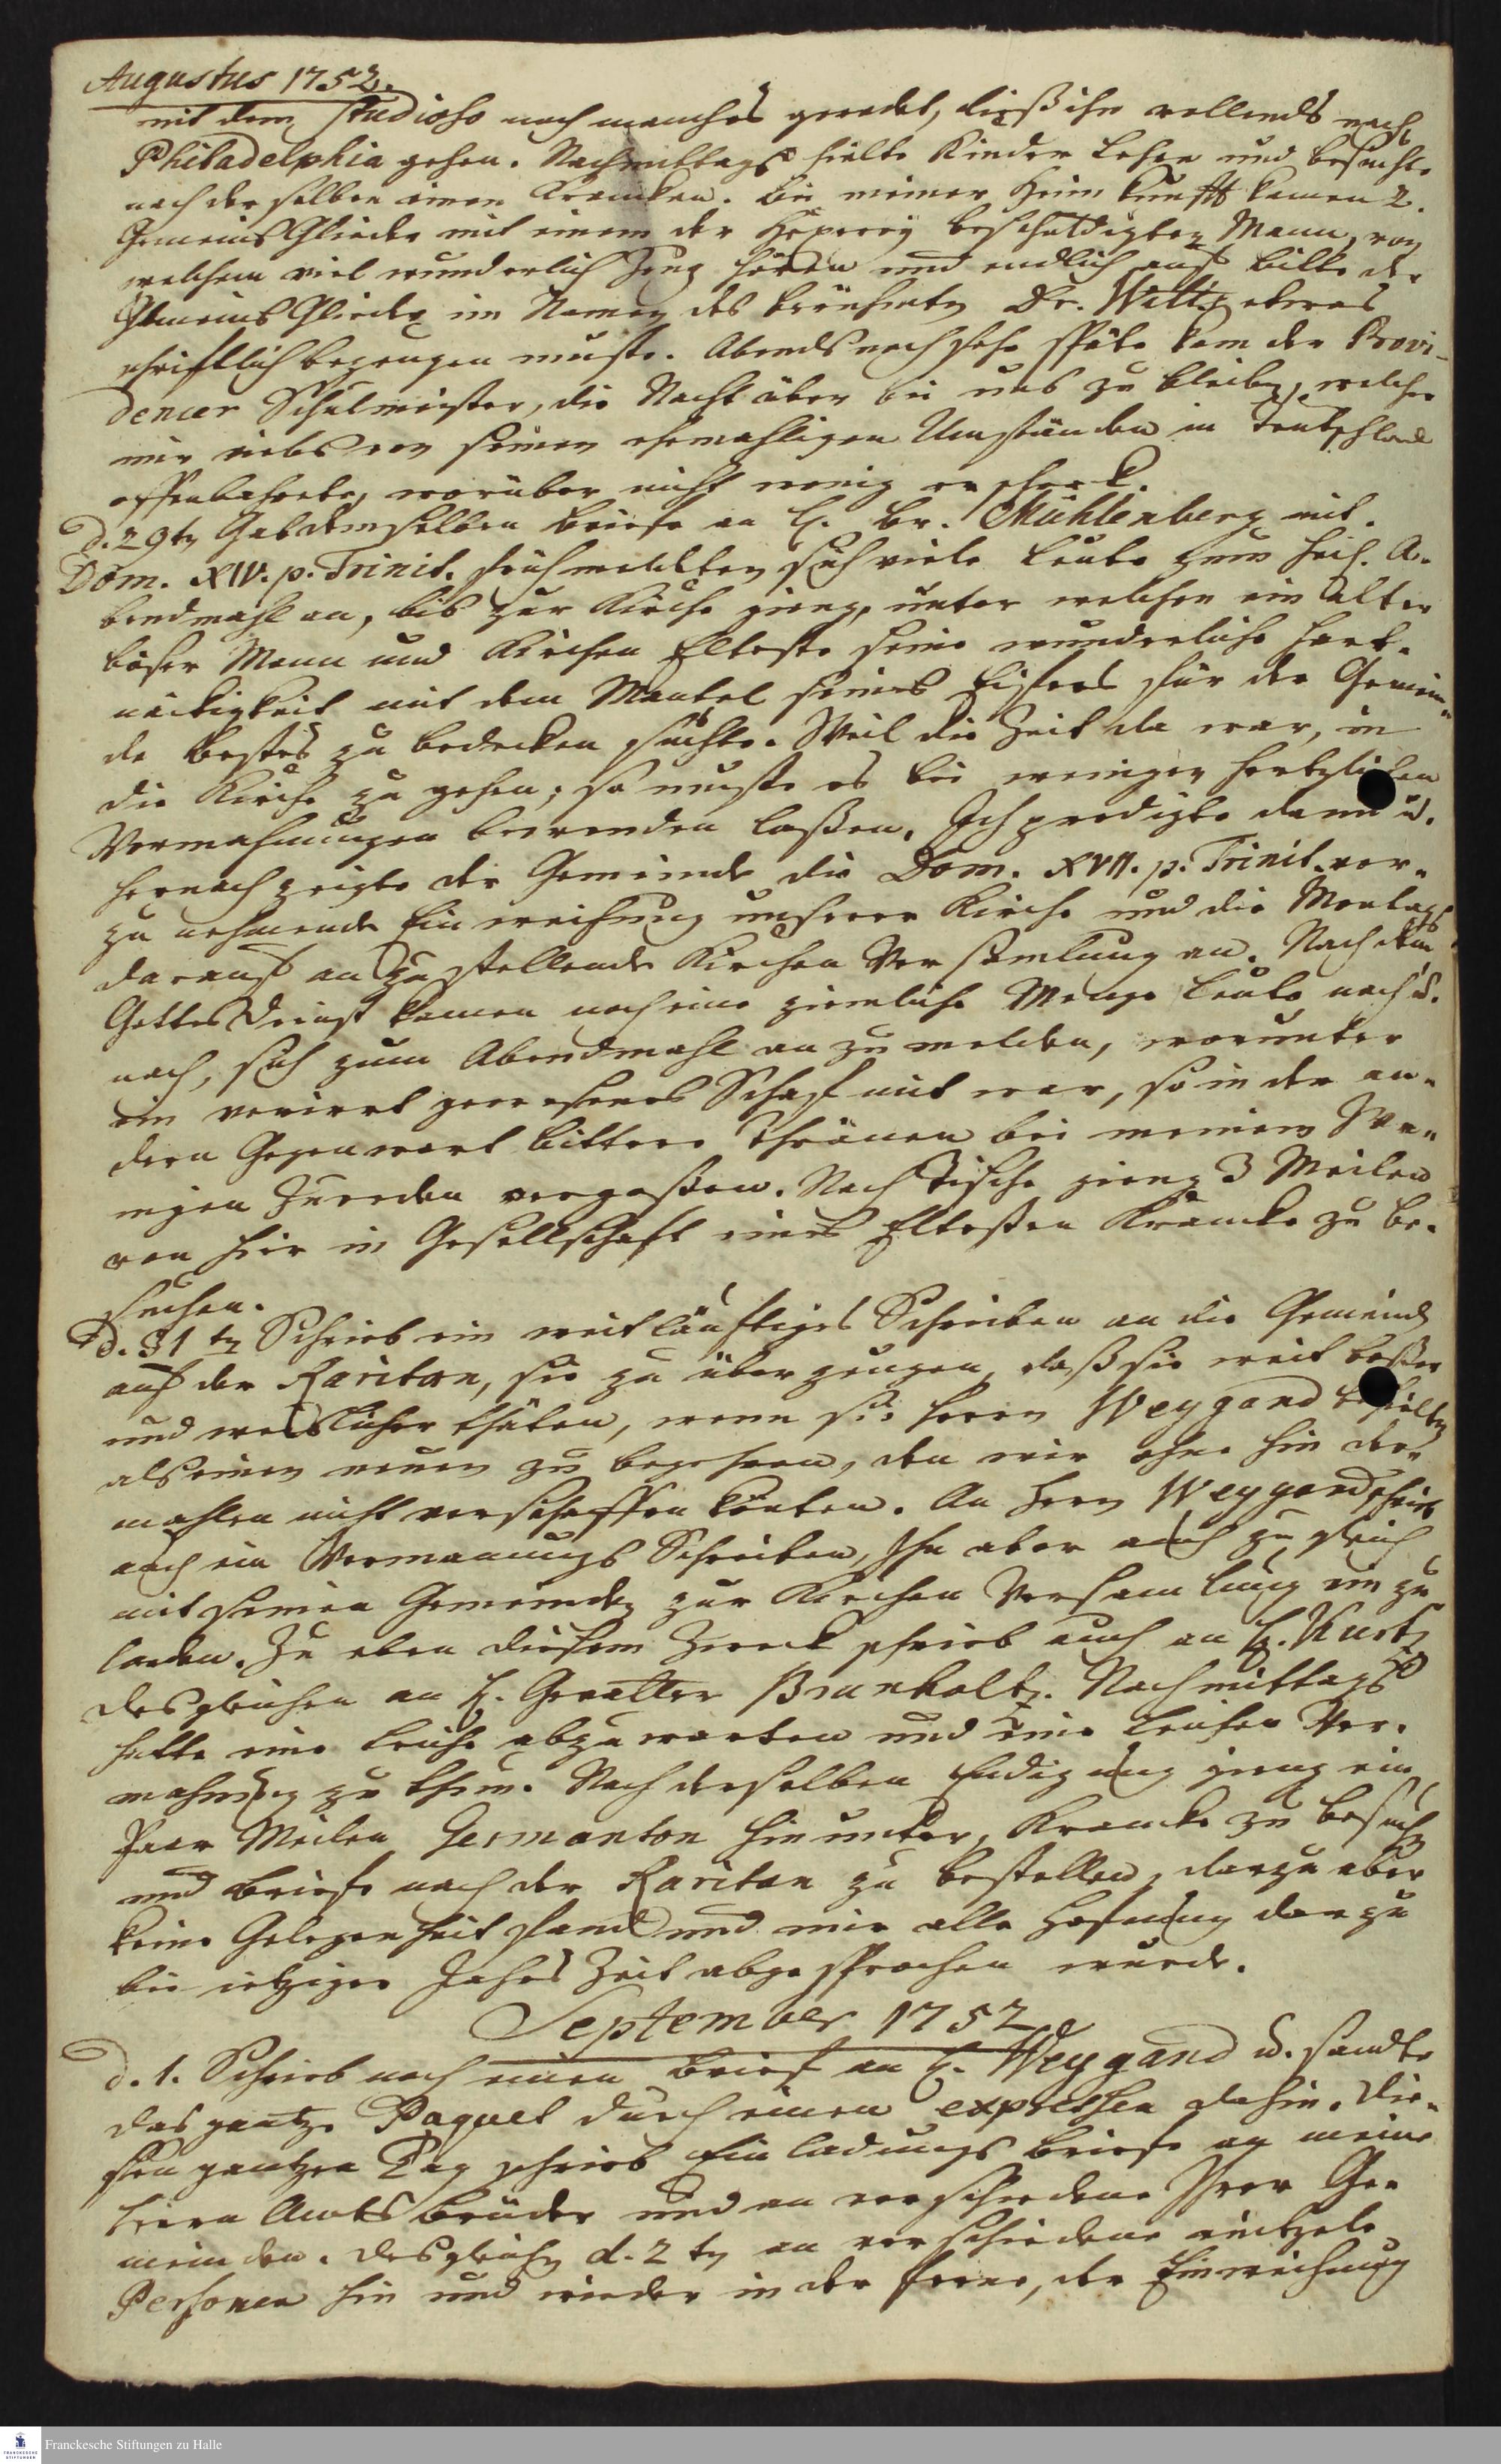 Augustus 1752.
mit dem Studioso noch manches geredet, ließ ihn vollends nach
Philadelphia gehen. Nachmittags hielte Kinder Lehre und besuchte
nach derselben einen Krancken. Bei meiner Heimkunfft kamen 2.
Gemeins Glieder mit einem der Hexerey beschuldigten Mann, von
welchem viel wunderlich Zeug hören und endlich auf bitte der
Gemeins Glieder im Namen des berühmten Dr. Witts etwas
schrifftlich bezeugen muste. Abends noch sehr späte kam der Provi-
dencer Schulmeister, die Nacht über bei uns zu bleiben, welcher
mir vieles von seinen ehemahligen Umständen in Teutschland
offenbahrete, worüber nicht wenig erschrack.
d. 29ten Gab demselben Briefe an H. Br. Mühlenberg mit.
Dom. XIV. p. Trinit. früh meldeten sich viele Leute zum heil. A-
bendmahl an, bis zur Kirche gieng, unter welchen ein alter
böser Mann und Kirchen Elteste seine wunderliche Hart-
näckigkeit mit dem Mantel seines Eyfers für der Gemein-
de bestes zu bedecken suchte. Weil die Zeit da war, in
die Kirche zu gehen; so muste es bei wenigen hertzlichen
Vermahnungen bewenden laßen. Ich predigte dann u.
hernach zeigte der Gemeinde die Dom. XVII. p. Trinit. vor-
zu nehmende Einweihung unserer Kirche und die Montags
darauf anzustellende Kirchen Versamlung an. Nach dem
Gottesdienst kamen noch eine ziemliche Menge Leute nach u.
nach, sich zum Abendmahl an zu melden, worunter
ein verirrt gewesenes Schaf mit war, so in der an-
dern Gegenwart bittere Thränen bei meinem We-
nigen Zureden vergoßen. Nach Tische gieng 3 Meilen
von hier in Gesellschaft eines Eltesten Krancke zu be-
suchen.
d. 31ten Schrieb ein weitläuftiges Schreiben an die Gemeinde
auf der Rariton, sie zu überzeugen, daß sie weit beßer
und weislicher thäten, wenn sie Herrn Weygand behielten
als einen neuen zu begehren, den wir ohne hin der-
mahlen nicht verschaffen könten. An Herrn Weygand schrieb
auch ein Vermanungs Schreiben, Ihn aber auch zugleich
mit seinen Gemeinden zur Kirchen Versamlung ein zu
laden. Zu eben diesem Zweck schrieb auch an H. Kurtz
desgleichen an H. Gevatter Brunholtz. Nachmittags
hatte eine Leiche abzuwarten und eine Leichen Ver-
mahnung zu thun. Nach derselben Endigung gieng ein
Paar Meilen Germanton hinunter, Krancke zu besuchen
und Briefe nach der Rariton zu bestellen, darzu aber
keine Gelegenheit fand und mir alle Hofnung darzu
bei ietziger Jahres Zeit abgesprochen wurde.
September 1752
d. 1. Schrieb noch einen Brief an H. Weygand u. sandte
das gantze Paquet durch einen expressen dahin. Die-
sen gantzen Tag schrieb Einladungs Briefe an meine
lieben Amts Brüder und an verschiedene Ihrer Ge-
meinden. desgleichen d. 2ten an verschiedene eintzele
Personen hin und wieder in der Ferne, der Einweihung
Franckesche Stiftungen zu Halle